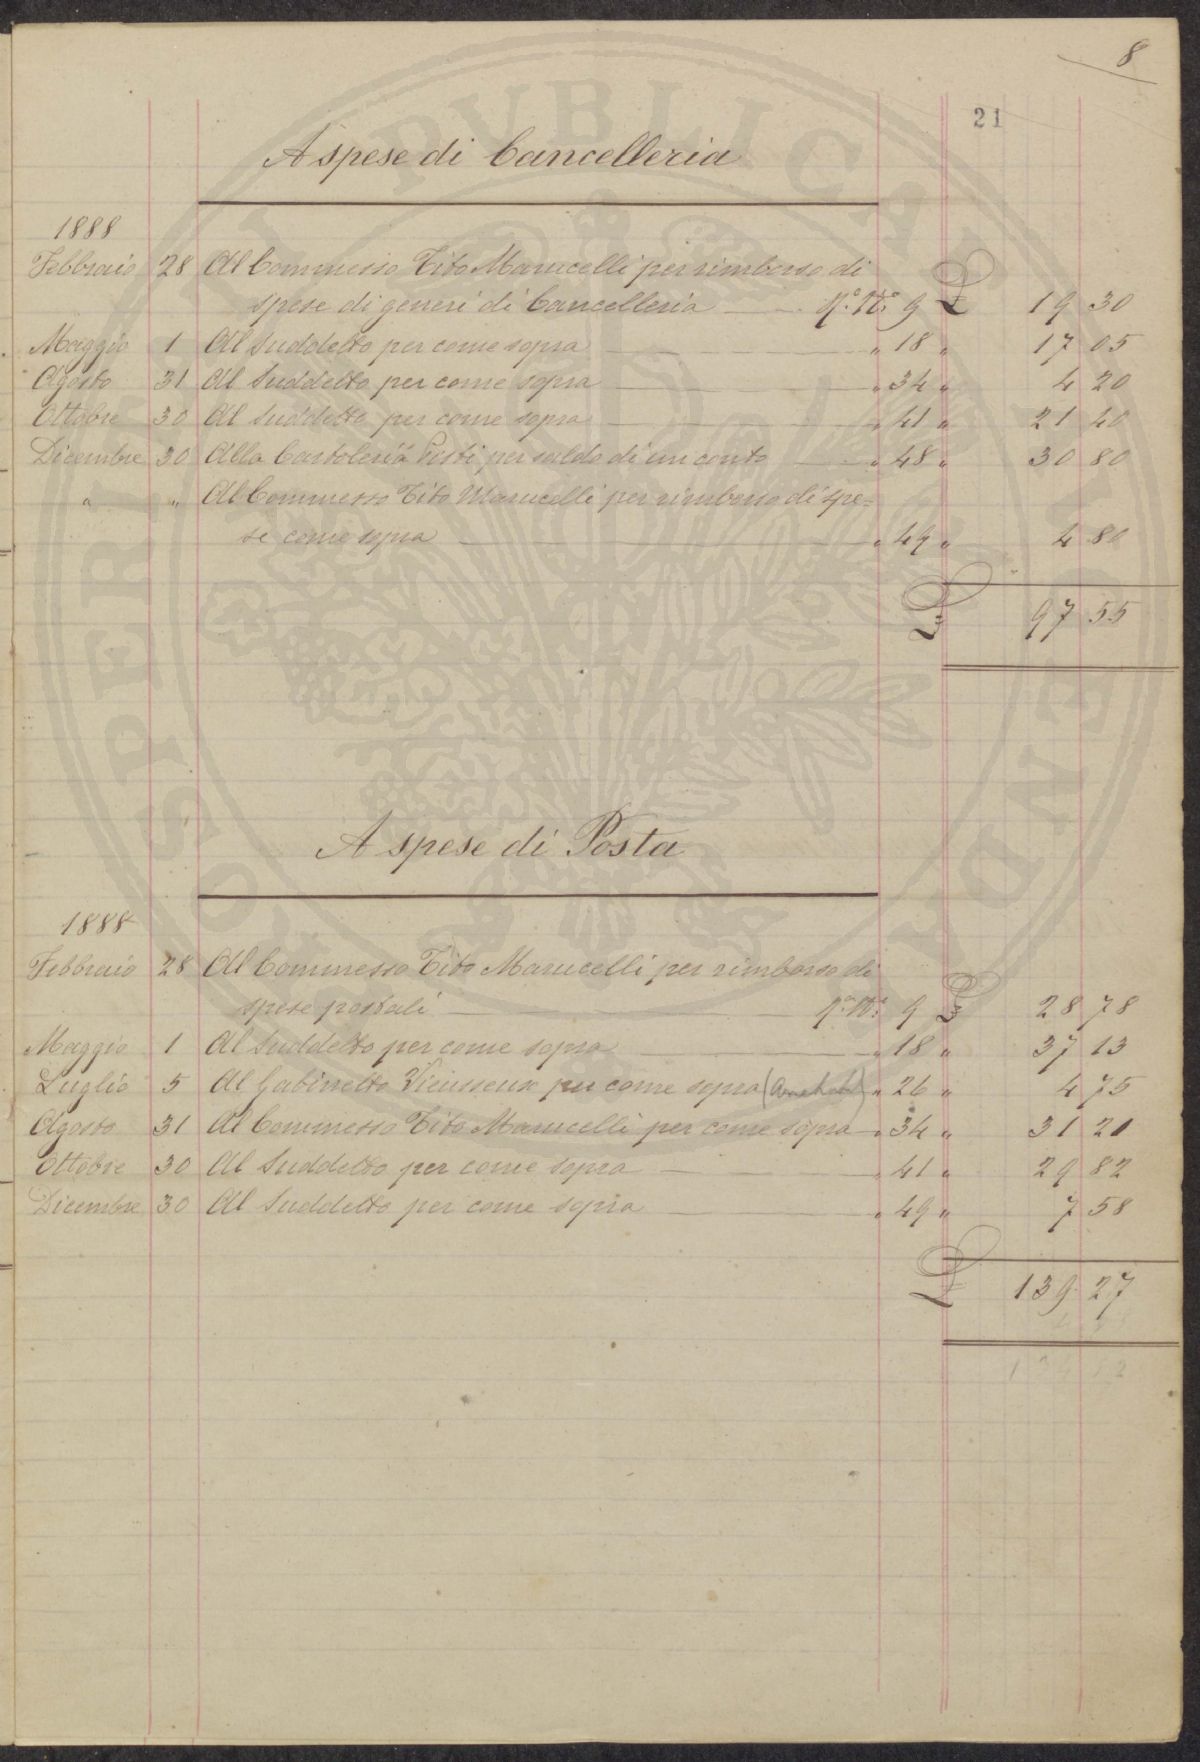 8
21
A spese di Cancelleria
1888
Febbraio 28 Al Commesso Tito Marucelli per rimborso di
spese di generi di Cancelleria 9 £ 19 30
Maggio 1 Al Suddetto per come sopra " 18 " 17 05
Agosto 31 Al Suddetto per come sopra " 34 " 4 20
Ottobre 30 Al Suddetto per come sopra " 41 " 21 40
Dicembre 30 Alla Cartoleria Pesti per saldo di un conto " 48 " 30 80
" " Al Commesso Tito Marucelli per rimborso di spe=
se come sopra " 49 " 4 80
£ 97 55
A spese di Posta
1888
Febbraio 28 Al Commesso Tito Marucelli per rimborso di
spese postali 9 £ 28 78
Maggio 1 Al Suddetto per come sopra " 18 " 37 13
Luglio 5 Al Gabinetto Vieusseux per come sopra " 26 " 4 75
Agosto 31 Al Commesso Tito Marucelli per come sopra " 34 " 31 21
Ottobre 30 Al Suddetto per come sopra " 41 " 29 82
Dicembre 30 Al Suddetto per come sopra " 49 " 7 58
£ 139 27